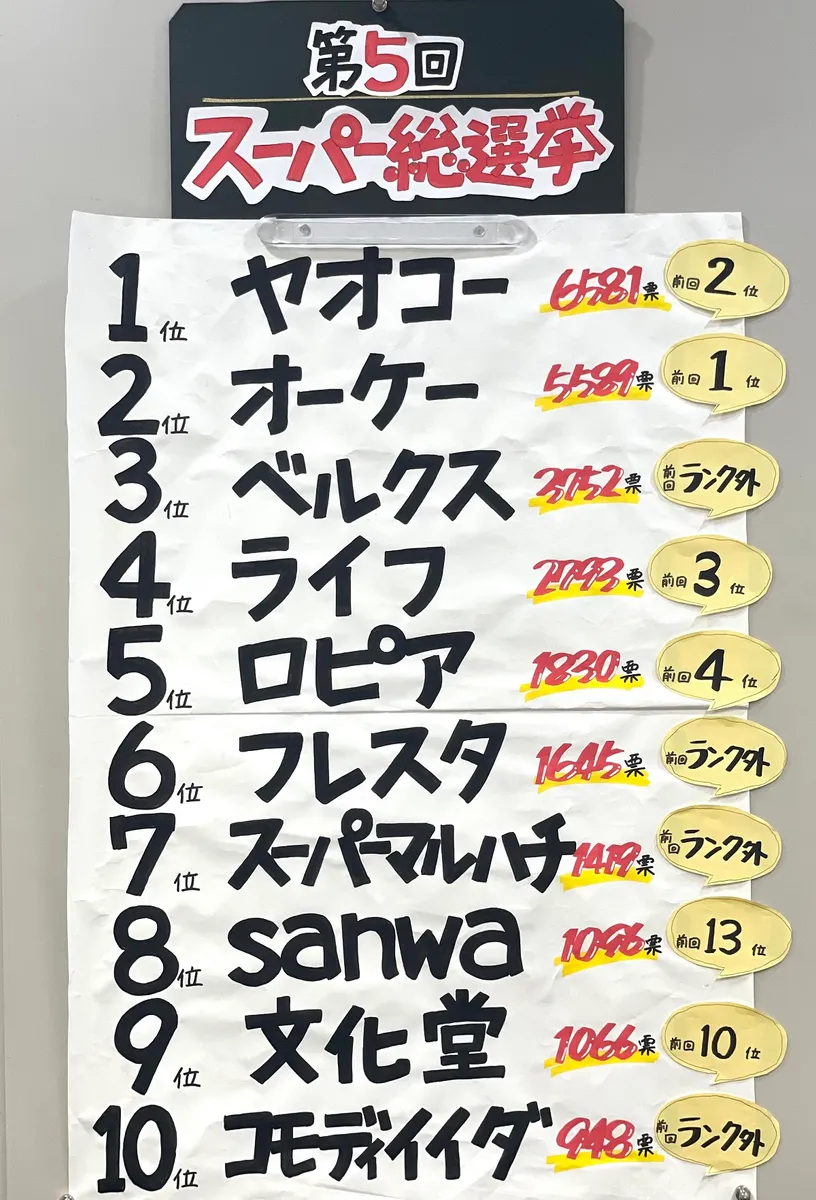 第5回
スーパー総選挙
1位 ヤオコー 6581票 前回2位
2位 オーケー 5589票 前回1位
3位 ベルクス 3752票 前回ランク外
4位 ライフ 2793票 前回3位
5位 ロピア 1830票 前回4位
6位 フレスタ 1645票 前回ランク外
7位 スーパーマルハチ 1419票 前回ランク外
8位 sanwa 1096票 前回13位
9位 文化堂 1066票 前回10位
10位 コモディイイダ 948票 前回ランク外